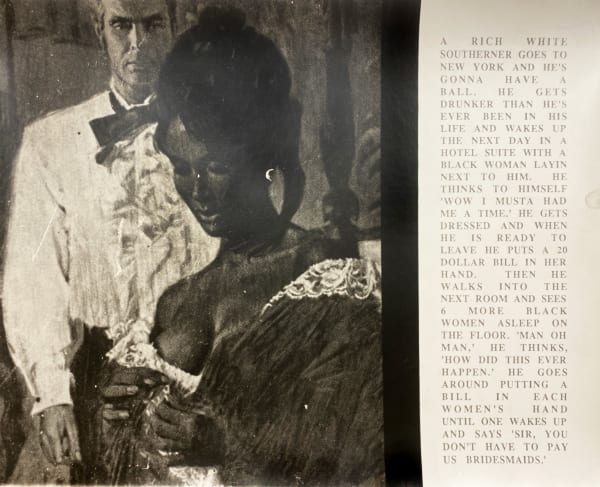 A RICH WHITE
SOUTHERNER GOES TO
NEW YORK AND HE'S
GONNA HAVE A
BALL. HE GETS
DRUNKER THAN HE'S
EVER BEEN IN HIS
LIFE AND WAKES UP
THE NEXT DAY IN A
HOTEL SUITE WITH A
BLACK WOMAN LAYIN
NEXT TO HIM. HE
THINKS TO HIMSELF
'WOW I MUSTA HAD
ME A TIME.' HE GETS
DRESSED AND WHEN
HE IS READY TO
LEAVE HE PUTS A 20
DOLLAR BILL IN HER
HAND. THEN HE
WALKS INTO THE
NEXT ROOM AND SEES
6 MORE BLACK
WOMEN ASLEEP ON
THE FLOOR. 'MAN OH
MAN,' HE THINKS,
'HOW DID THIS EVER
HAPPEN.' HE GOES
AROUND PUTTING A
BILL IN EACH
WOMEN'S HAND
UNTIL ONE WAKES UP
AND SAYS 'SIR, YOU
DON'T HAVE TO PAY
US BRIDESMAIDS.'